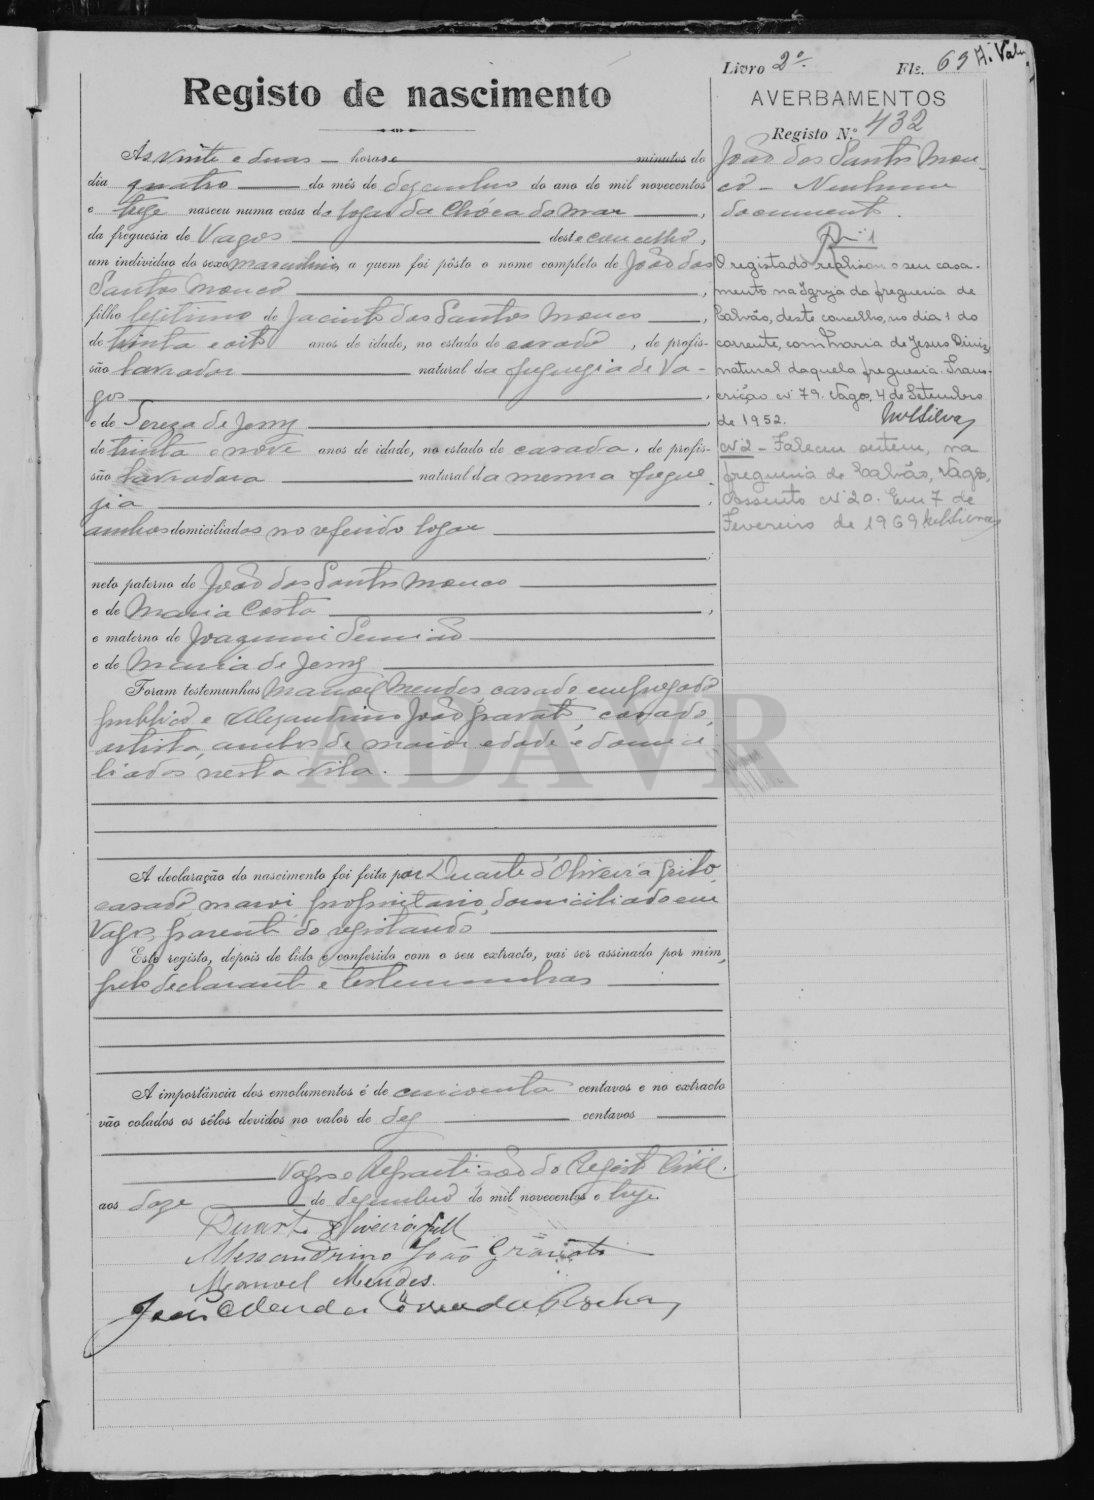 Livro 2º Fls. 63 A. Valu
Registo de nascimento
AVERBAMENTOS
Registo N.º 432
As vinte e duas horas e minutos do
dia quatro do mês de dezembro do ano de mil novecentos
e treze nasceu numa casa do logar da Chóca do mar,
da freguesia de Vagos deste concelho,
um individuo do sexo masculino, a quem foi pôsto o nome completo de João dos
Santos Mouco,
filho legitimo de Jacinto dos Santos Mouco,
de trinta e oito anos de idade, no estado de casado, de profis-
são lavrador natural da freguezia de Va-
gos,
e de Tereza de Jesus,
de trinta e nove anos de idade, no estado de casada, de profis-
são lavradora natural da mesma fregue
zia,
ambos domiciliados no referido logar
neto paterno de João dos Santos Mouco
e de Maria Costa,
e materno de Joaquim Simião
e de Maria de Jesus
Foram testemunhas Manoel Mendes, casado empregado
publico e Alexandrino João Gravato, casado,
artista, ambos de maior edade e domici
liados nesta vila.
A declaração do nascimento foi feita por Duarte d'Oliveira
casado, maior proprietario, domiciliado em
Vagos, parente do registando
Este registo, depois de lido e conferido com o seu extracto, vai ser assinado por mim,
pelo declarante e testemunhas
A importância dos emolumentos é de cincoenta centavos e no extracto
vão colados os sêlos devidos no valor de dez centavos
Vagos e Repartição do Registo Civil.
aos doze de dezembro de mil novecentos e treze.
Duarte Oliveira
Alessandrino João Gravato
Manoel Mendes.
João Mendes Correia da Rocha
João dos Santos Mou-
co - Nenhum
documento.
Nº 1
O registado realizou o seu casa-
mento na Igreja da freguesia de
Calvão, deste concelho, no dia 1 do
corrente, com Maria de Jesus Diniz,
natural daquela freguesia. Trans-
crição nº 79. Vagos, 4 de Setembro
de 1952.
Nº 2 - Faleceu ontem, na
freguesia de Calvão, Vagos,
Assento nº 20. Em 7 de
Fevereiro de 1969
ADAVR